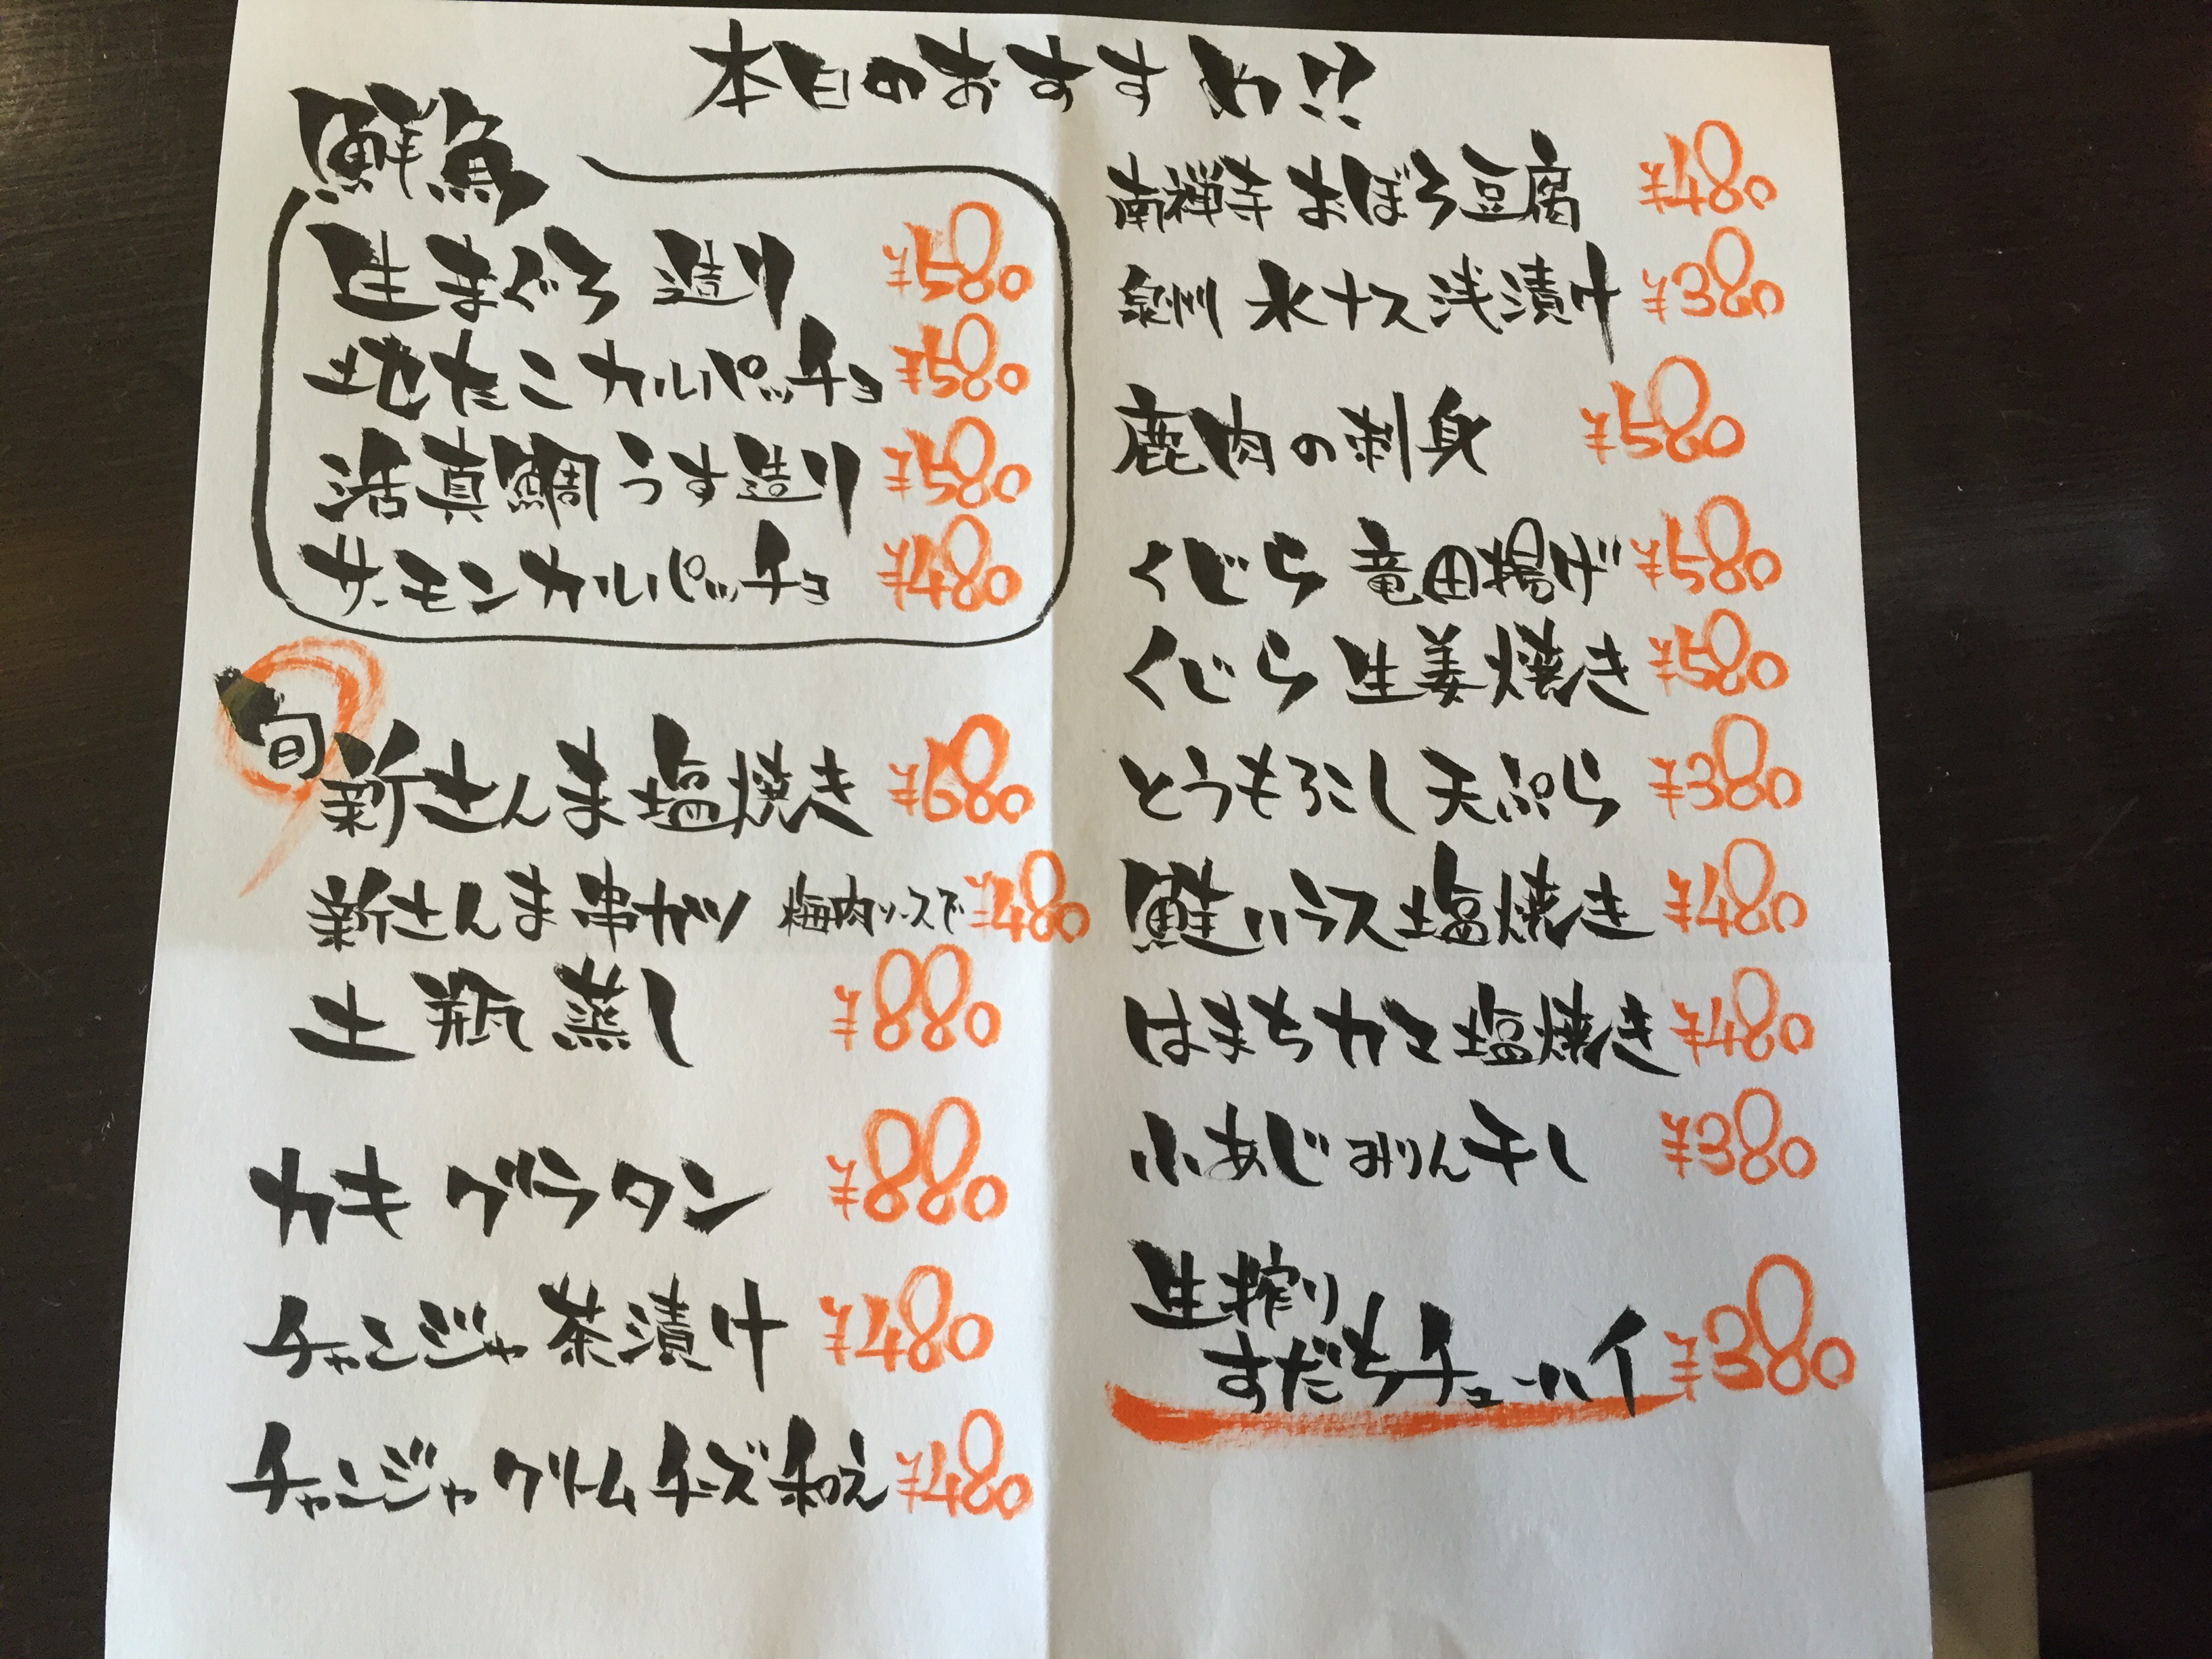 本日のおすすめ!?
鮮魚
生まぐろ 造り ¥580
地たこ カルパッチョ ¥580
活真鯛 うす造り ¥580
サーモンカルパッチョ ¥480
旬
新さんま塩焼き ¥680
新さんま串カツ 梅肉ソースで ¥480
土瓶蒸し ¥880
カキ グラタン ¥880
チャンジャ茶漬け ¥480
チャンジャ クリームチーズ和え ¥480
南禅寺 おぼろ豆腐 ¥480
泉州 水ナス浅漬け ¥380
鹿肉の刺身 ¥580
くじら 竜田揚げ ¥580
くじら 生姜焼き ¥580
とうもろこし天ぷら ¥380
鮭ハラス塩焼き ¥480
はまちカマ塩焼き ¥480
小あじみりん干し ¥380
生搾り
すだちチューハイ ¥380